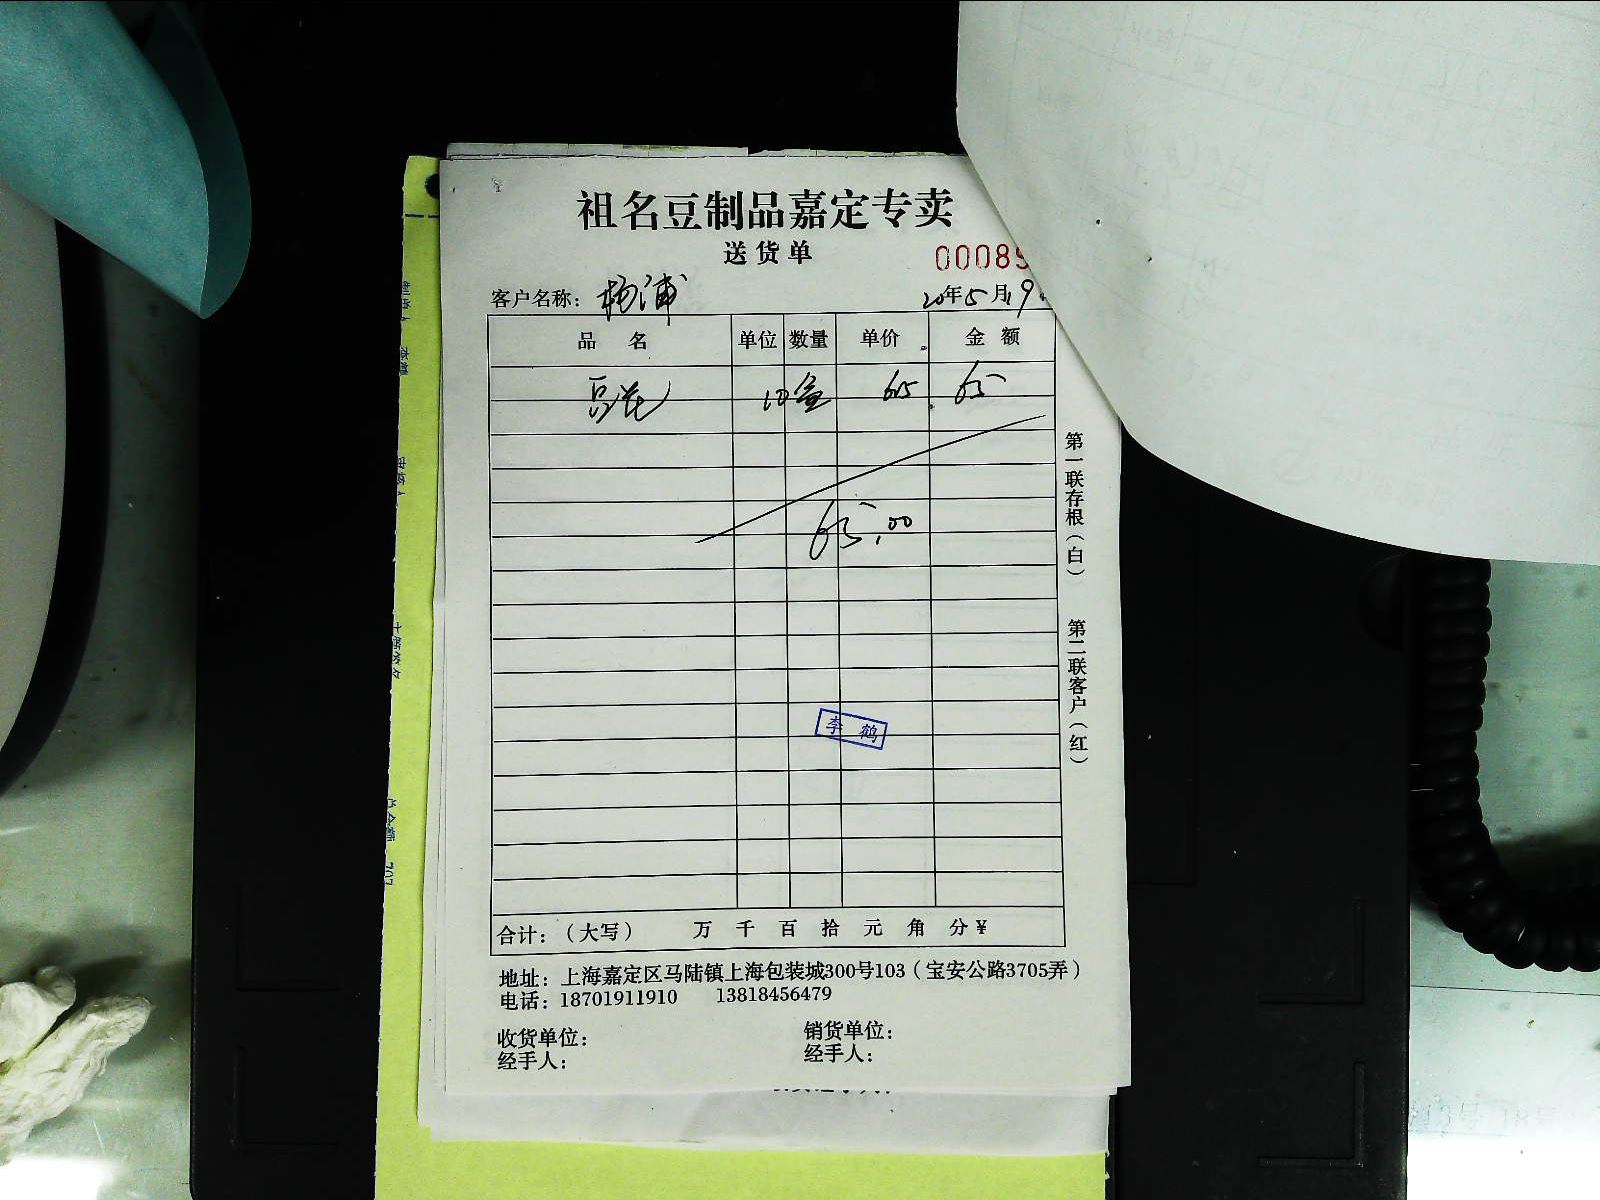 祖名豆制品嘉定专卖
送货单
00089
客户名称： 杨浦
20年5月19
品名 单位 数量 单价 金额
豆花 10盒 6.5 65
65.00
李鹤
合计：（大写） 万 千 百 拾 元 角 分 ¥
地址：上海嘉定区马陆镇上海包装城300号103（宝安公路3705弄）
电话：18701911910 13818456479
收货单位： 销货单位：
经手人： 经手人：
第一联存根（白） 第二联客户（红）